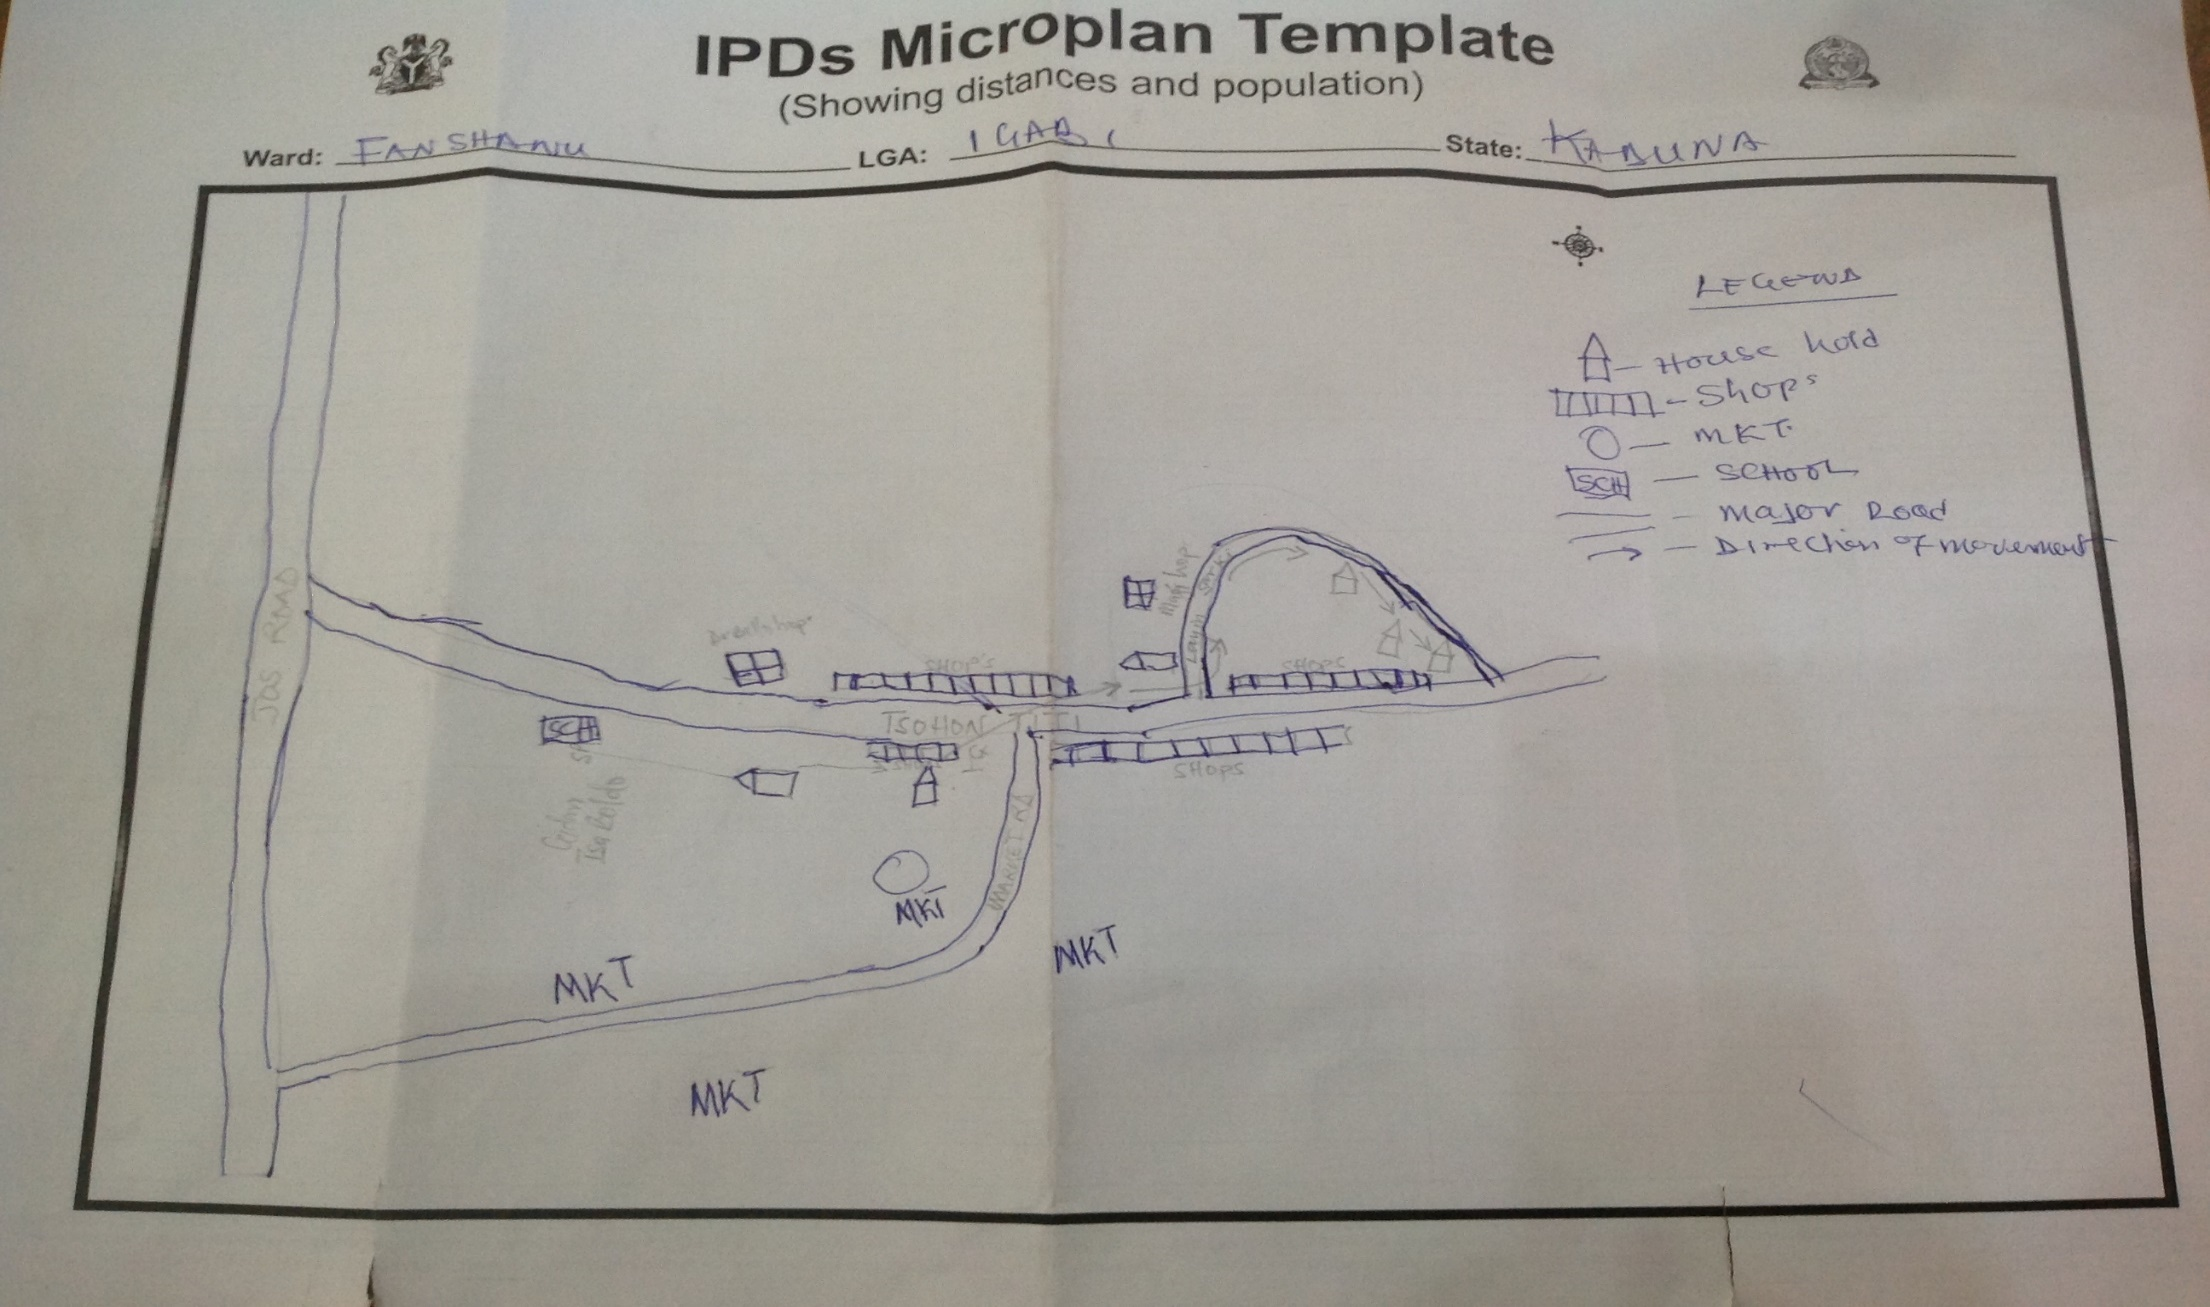 IPDs Microplan Template
(Showing distances and population)
Ward: FANSHANU LGA: IGABI State: KADUNA
LEGEND
House hold
Shops
MKT
SCHOOL
Major Road
Direction of movement
JOS ROAD
SHOP'S
SHOPS
SCH
SCH
TSOHON TITI
SHOPS
MARKET RD
MKT
MKT
MKT
MKT